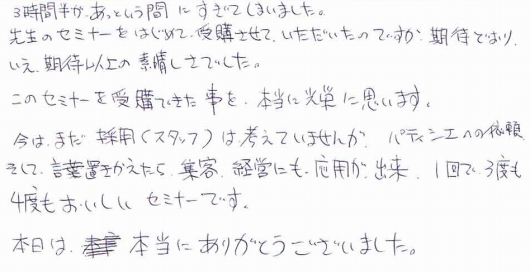 3時間半が、あっという間にすぎてしまいました。
先生のセミナーをはじめて、受購させて、いただいたのですが、期待どおり、
いえ、期待以上の素晴しさでした。
このセミナーを受購できた事を、本当に光栄に思います。
今は、まだ採用(スタッフ)は考えていませんが、パティシエへの依頼
そして、言葉置きかえたら、集客、経営にも、応用が、出来、1回で、3度も
4度もおいしいセミナーです。
本日は、本当にありがとうございました。